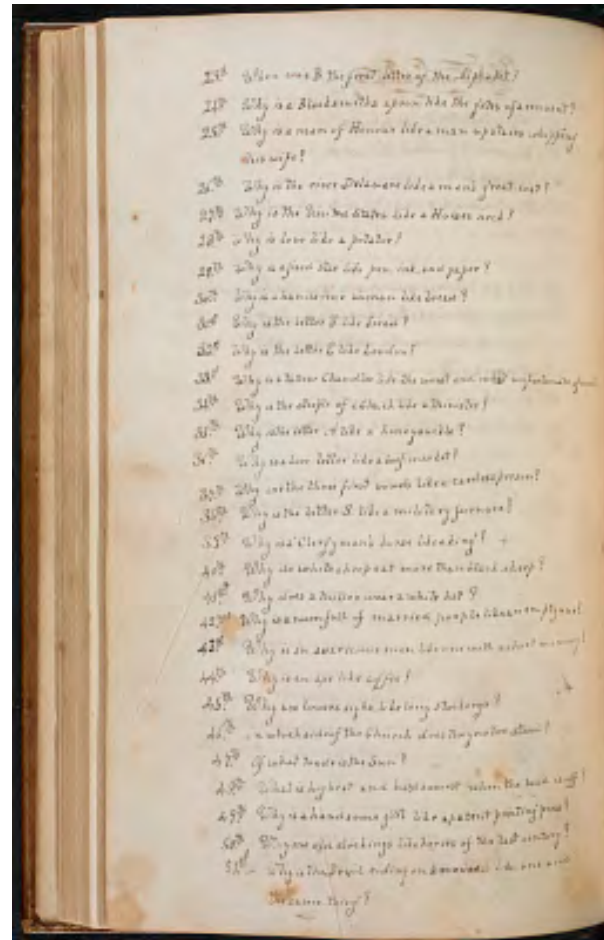 23d When was B the first letter of the Alphabet?
24th Why is a Blacksmith's apron like the gates of a convent?
25th Why is a man of Honour like a man upstairs whipping
his wife?
26th Why is the river Delaware like a man's great coat?
27th Why is the United States like a Horse's neck?
28th Why is love like a potatoe?
29th Why is a fixed star like pen, ink, and paper?
30th Why is a handsome woman like bread?
Why is the letter like
32d Why is the letter E like London?
33d Why is a Tallow Chandler like the most and unfortunate
34th Why is the steeple of a Church like a
35th Why is the letter A like a honeysuckle?
36th Why is a love letter like a market?
37th Why are the three first vowels like a person?
38th Why is the letter S like a military furnace?
39th Why is a Clergyman's horse like a King? +
40th Why do white sheep eat more than black sheep?
41st Why does a miller wear a white hat?
42nd Why is a roomfull of married people like an empty one?
43d Why is an avaricious man like one with a short memory?
44th Why is an ape like coffee?
45th Why are lovers sighs like long stockings?
46th which side of the Church does the yewtree stand?
47th Of what trade is the Sun?
48th What is highest and handsomest when the head is off?
49th Why is a handsome girl like a patent printing press?
50th Why are old stockings like heroes of the last century?
51st Why is the Devil riding on a mouse like one and
the same thing?